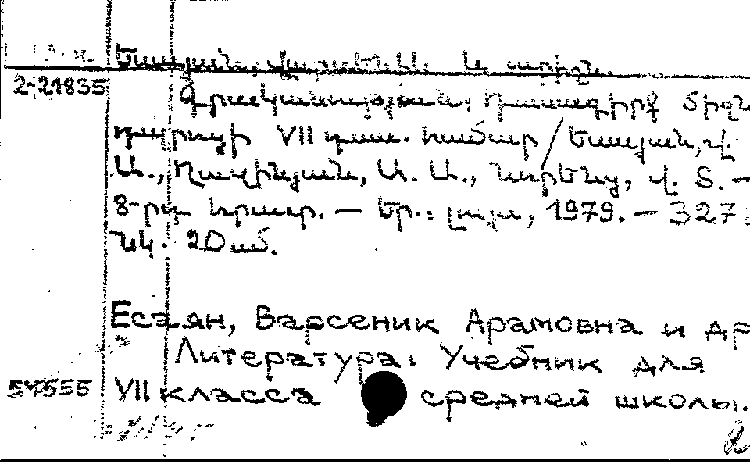 Եսայան, Վարսենիկ և ուրիշն.
2-21835
Գրականություն: Դասագիրք միջն.
դպրոցի VII դաս. համար / Եսայան, Վ.
Ա., Դավինյան, Ա. Ա., Նարենց, Վ. Տ. —
8-րդ հրատ. — Եր.: Լույս, 1979. — 327
նկ. 20 սմ.
Есаян, Варсеник Арамовна и др
Литература: Учебник для
54555 VII класса средней школы.